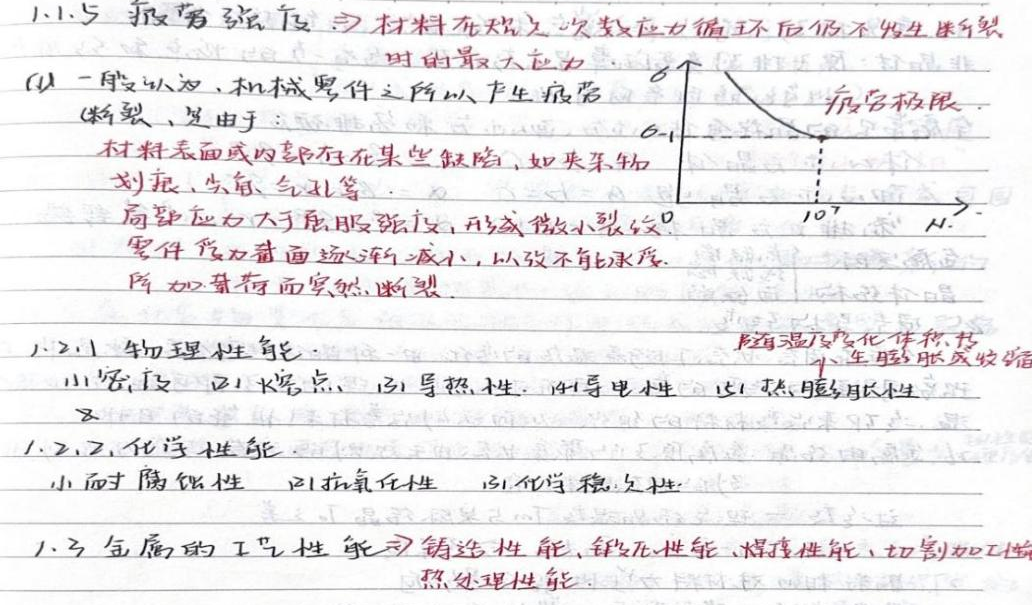 1.1.5 疲劳强度 ⇒ 材料在规定次数应力循环后仍不发生断裂
时的最大应力.
(1) 一般认为,机械零件之所以产生疲劳
断裂、是由于:
材料表面或内部存在某些缺陷,如夹杂物
划痕、尖角、气孔等.
局部应力大于屈服强度,形成微小裂纹
零件受力截面逐渐减小,以致不能承受.
所加载荷而突然断裂.
σ
σ-1
疲劳极限.
0
10⁷
N.
1.2.1 物理性能
随温度变化体积发
生膨胀或收缩
(1) 密度 (2) 熔点、(3) 导热性. (4) 导电性 (5) 热膨胀性
1.2.2. 化学性能.
(1) 耐腐蚀性 (2) 抗氧化性 (3) 化学稳定性.
1.3 金属的工艺性能 ⇒ 铸造性能、锻压性能、焊接性能、切割加工性能
热处理性能